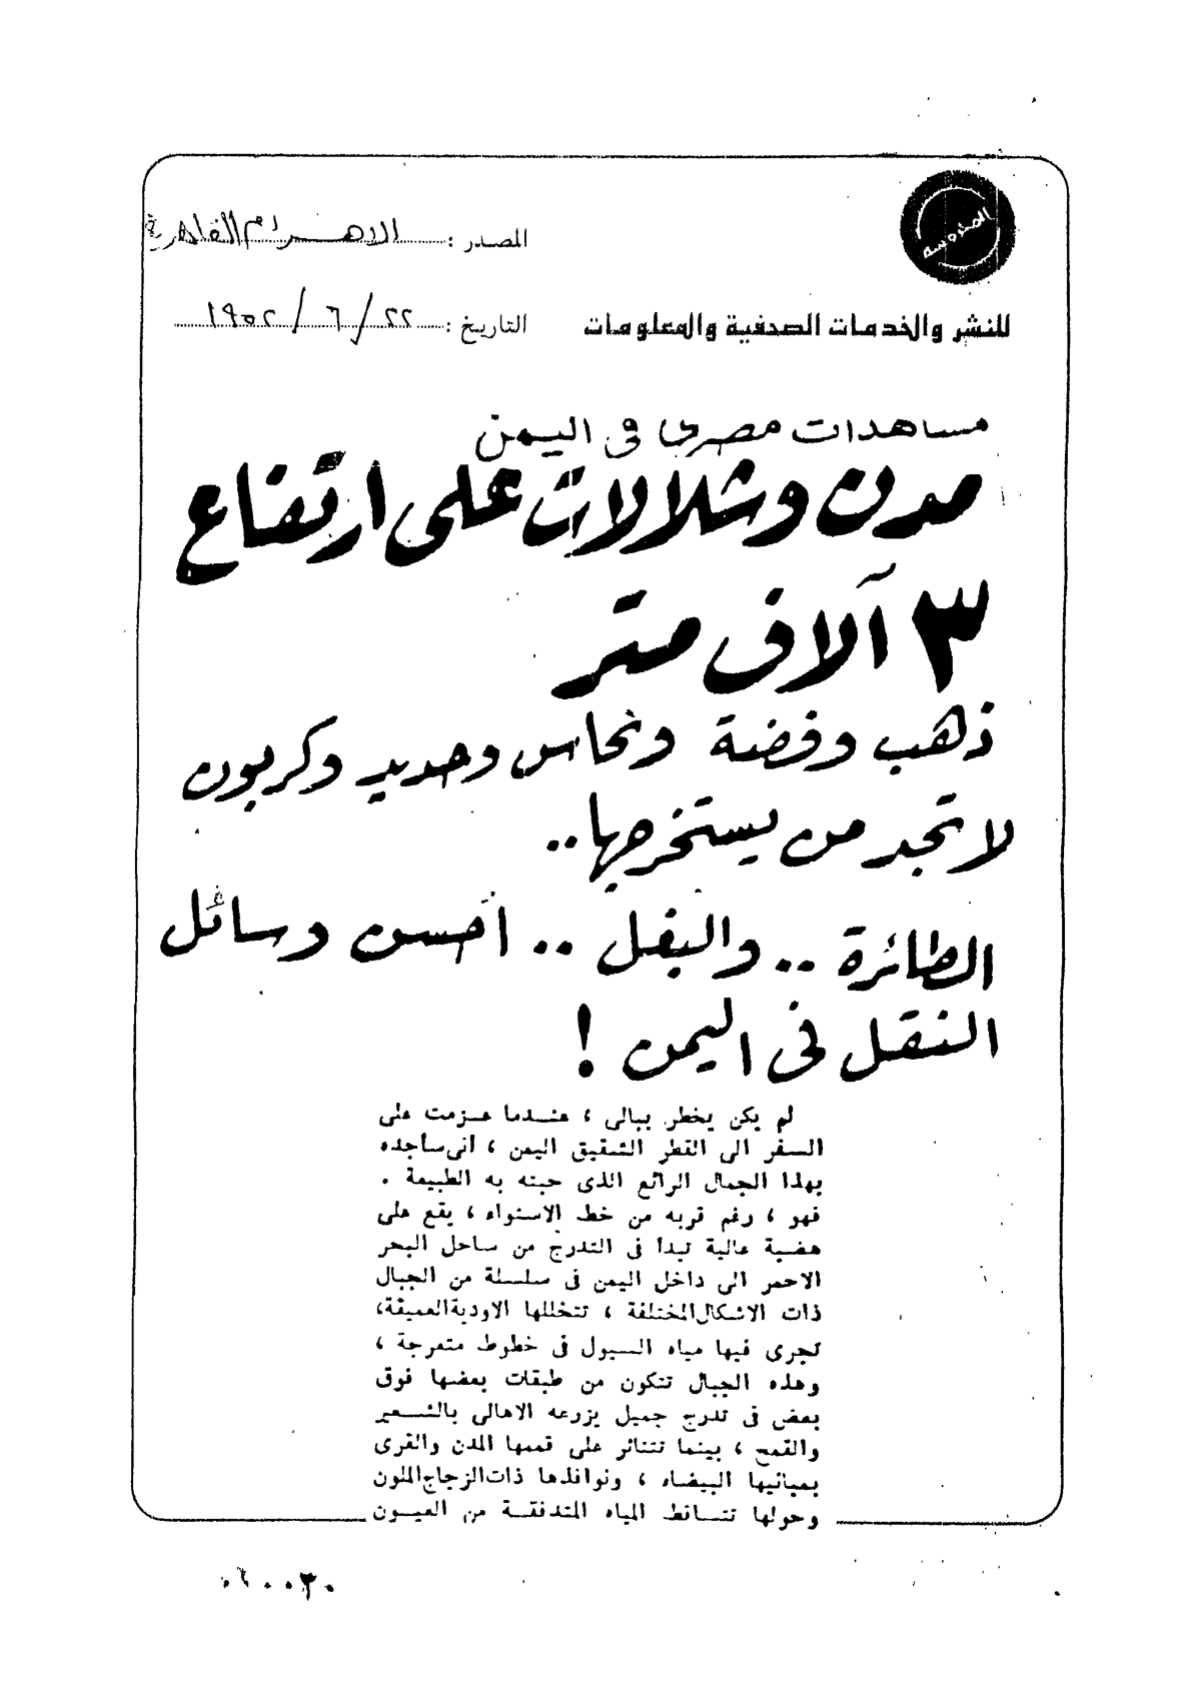 المحروسة
المصدر : الاهرام القاهرية
للنشر والخدمات الصحفية والمعلومات
التاريخ : ٢٢ / ٦ / ١٩٥٢
مشاهدات مصرى فى اليمن
مدن وشلالات على ارتفاع
٣ آلاف متر
ذهب وفضة ونحاس وحديد وكربون
لا تجد من يستخرجها..
الطائرة .. والبغل .. أحسن وسائل
النقل فى اليمن !
لم يكن يخطر ببالى ، عندما عزمت على
السفر الى القطر الشقيق اليمن ، أنى سأجده
بهذا الجمال الرائع الذى حبته به الطبيعة .
فهو ، رغم قربه من خط الاستواء ، يقع على
هضبة عالية تبدأ فى التدرج من ساحل البحر
الاحمر الى داخل اليمن فى سلسلة من الجبال
ذات الاشكال المختلفة ، تتخللها الاودية العميقة،
تجرى فيها مياه السيول فى خطوط متعرجة ،
وهذه الجبال تتكون من طبقات بعضها فوق
بعض فى تدرج جميل يزرعه الاهالى بالشعير
والقمح ، بينما تتناثر على قممها المدن والقرى
بمبانيها البيضاء ، ونوافذها ذات الزجاج الملون
وحولها تتساقط المياه المتدفقة من العيون